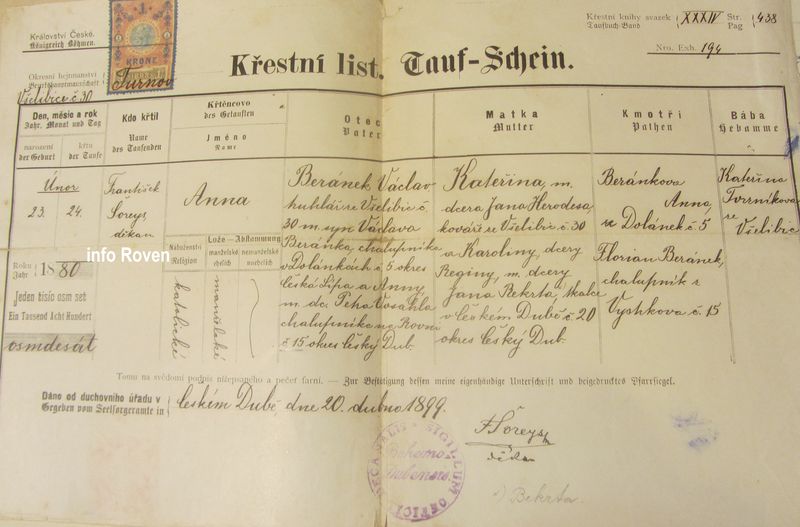 Království České.
Königreich Böhmen.
1
KRONE
Křestní knihy svazek XXXIV Str. 438
Taufbuch-Band Pag
Nro. Exh. 194
Křestní list. Tauf-Schein.
Okresní hejtmanství
Bezirkshauptmannschaft
Turnov
Všelibice č 30
Den, měsíc a rok
Jahr, Monat und Tag
narození
der Geburt
křtu
der Taufe
Kdo křtil
Name
des Taufenden
Křtěncovo
des Getauften
Jméno
Name
Otec
Vater
Matka
Mutter
Kmotři
Pathen
Bába
Hebamme
Únor
23. 24.
Roku
Jahr
1880
Jeden tisíc osm set
Ein Tausend Acht Hundert
osmdesát
František
Šoreys,
děkan
Anna
Náboženství
Religion
katolické
Lože – Abstammung
manželské
ehelich
nemanželské
unehelich
manželské
Beránek Václav
hudlář ve Všelibic č.
30 m. syn Václava
Beránka, chalupníka
v Dolánkách č 5 okres
Česká Lípa a Anny,
m. dc. Petra Vosáhla
chalupníka na Rovni
č 15 okres Český Dub.
Kateřina, m.
dcera Jana Herodesa,
kováře ve Všelibic č. 30
a Karoliny, dcery
Reginy, m. dcery
Jana Bekrta, tkalce
v Českém Dubě č. 20
okres Český Dub.
Beránkova
Anna,
z Dolánek č 5
Florian Beránek,
chalupník z
Vyshkova č. 15
Kateřina
Tvrzníkova
ze
Všelibic
info Roven
Tomu na svědomí podpis nížepsaného a pečeť farní. — Zur Bestätigung dessen meine eigenhändige Unterschrift und beigedrucktes Pfarrsiegel.
Dáno od duchovního úřadu v
Gegeben vom Seelsorgeramte in
Českém Dubě, dne 20. dubna 1899.
F. Šoreys,
děkan
SIGILLUM OFFICI DECANALIS
Bohemo
Dubensis
) Bekrta.